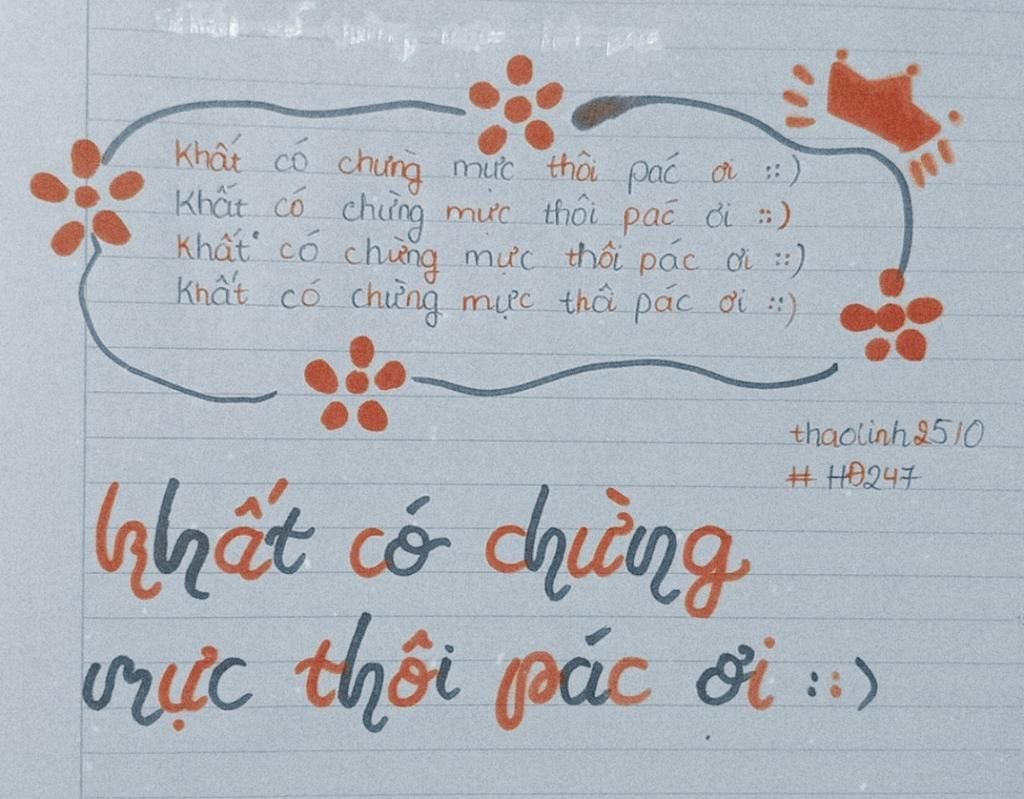 Khất có chưng mực thôi pác ơi ::)
Khất có chừng mực thôi pác ơi ::)
Khất có chừng mực thôi pác ơi ::)
Khất có chừng mực thôi pác ơi ::)
thaolinh2510
# HĐ247
Khất có chừng
mực thôi pác ơi ::)